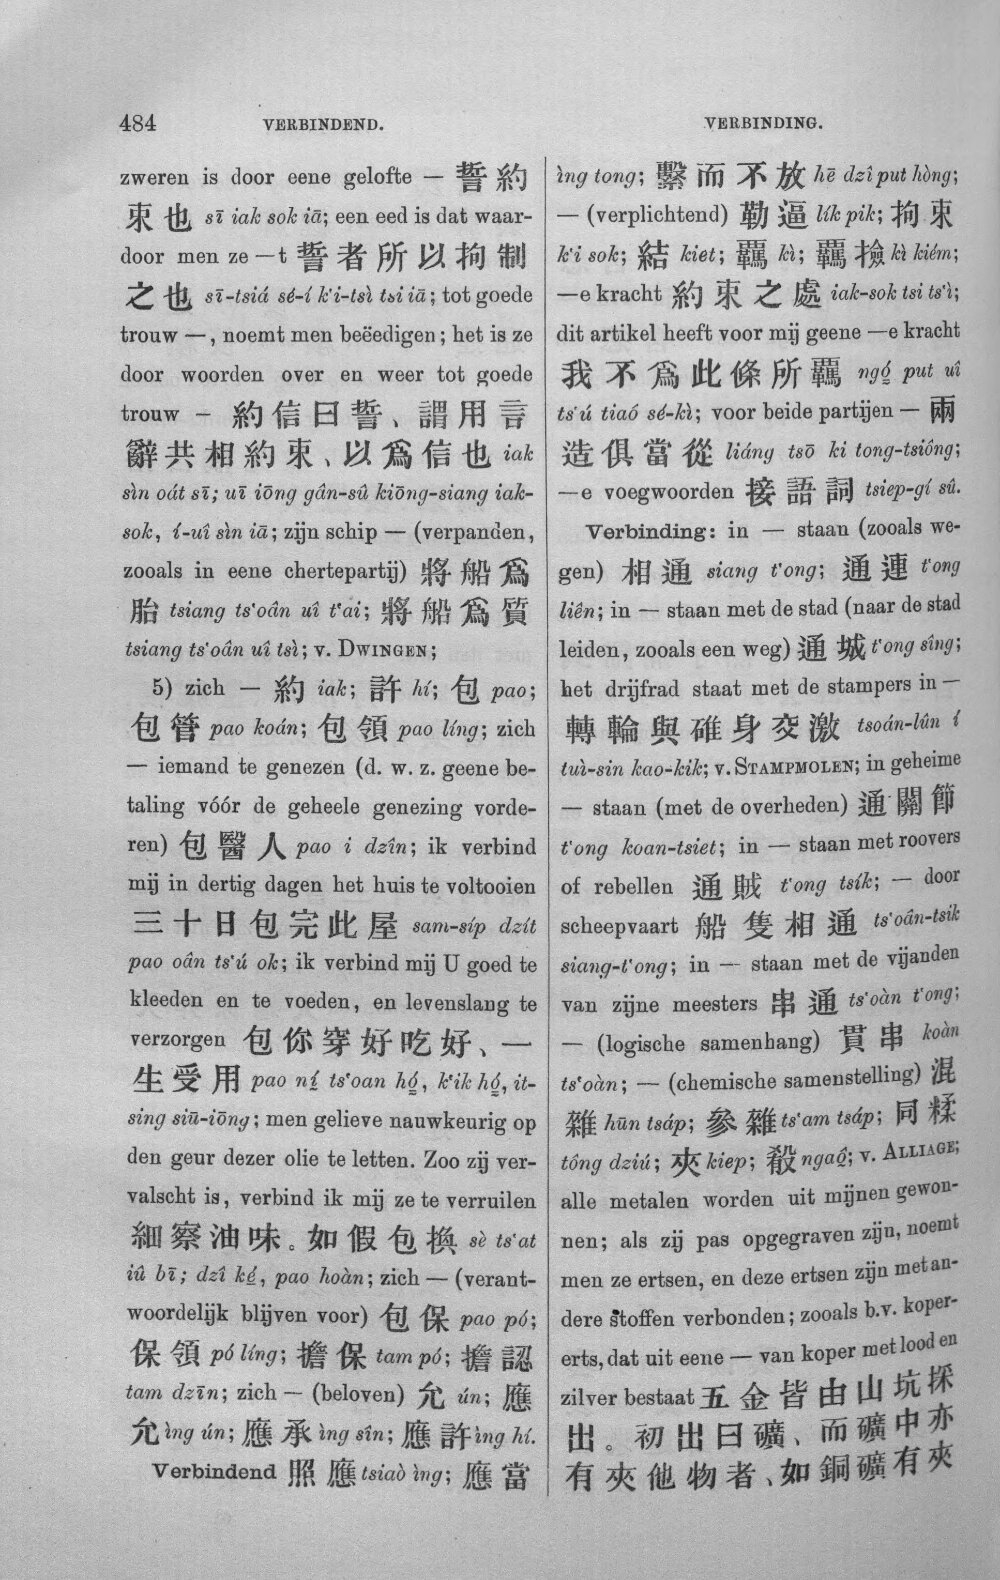 484 VERBINDEND. VERBINDING.
zweren is door eene gelofte — 誓約
束也 sī iak sok iā; een eed is dat waar-
door men ze —t 誓者所以拘制
之也 sī-tsiá sé-í k‘i-tsì tsi iā; tot goede
trouw —, noemt men beëedigen; het is ze
door woorden over en weer tot goede
trouw – 約信曰誓、謂用言
辭共相約束、以爲信也 iak
sìn oát sī; uī iōng gân-sû kiōng-siang iak-
sok, í-uî sìn iā; zijn schip — (verpanden,
zooals in eene chertepartij) 將船爲
胎 tsiang ts‘oân uî t‘ai; 將船爲質
tsiang ts‘oân uî tsì; v. DWINGEN;
5) zich — 約 iak; 許 hí; 包 pao;
包管 pao koán; 包領 pao líng; zich
— iemand te genezen (d. w. z. geene be-
taling vóór de geheele genezing vorde-
ren) 包醫人 pao i dzîn; ik verbind
mij in dertig dagen het huis te voltooien
三十日包完此屋 sam-síp dzít
pao oân ts‘ú ok; ik verbind mij U goed te
kleeden en te voeden, en levenslang te
verzorgen 包你穿好吃好、一
生受用 pao ní ts‘oan hó, k‘ik hó, it-
sing siū-iōng; men gelieve nauwkeurig op
den geur dezer olie te letten. Zoo zij ver-
valscht is, verbind ik mij ze te verruilen
細察油味。如假包換 sè ts‘at
iû bī; dzî ké, pao hoàn; zich — (verant-
woordelijk blijven voor) 包保 pao pó;
保領 pó líng; 擔保 tam pó; 擔認
tam dzīn; zich — (beloven) 允 ún; 應
允 ìng ún; 應承 ìng sîn; 應許 ìng hí.
Verbindend 照應 tsiaò ìng; 應當
ìng tong; 繫而不放 hē dzî put hòng;
— (verplichtend) 勒逼 lík pik; 拘束
k‘i sok; 結 kiet; 羈 kì; 羈撿 kì kiém;
—e kracht 約束之處 iak-sok tsi ts‘ì;
dit artikel heeft voor mij geene —e kracht
我不爲此條所羈 ngó put uî
ts‘ú tiaó sé-kì; voor beide partijen — 兩
造俱當從 liáng tsō ki tong-tsiông;
—e voegwoorden 接語詞 tsiep-gí sû.
Verbinding: in — staan (zooals we-
gen) 相通 siang t‘ong; 通連 t‘ong
liên; in — staan met de stad (naar de stad
leiden, zooals een weg) 通城 t‘ong sîng;
het drijfrad staat met de stampers in —
轉輪與碓身交激 tsoán-lûn í
tuì-sin kao-kik; v. STAMPMOLEN; in geheime
— staan (met de overheden) 通關節
t‘ong koan-tsiet; in — staan met roovers
of rebellen 通賊 t‘ong tsík; — door
scheepvaart 船隻相通 ts‘oân-tsik
siang-t‘ong; in — staan met de vijanden
van zijne meesters 串通 ts‘oàn t‘ong;
— (logische samenhang) 貫串 koàn
ts‘oàn; — (chemische samenstelling) 混
雜 hūn tsáp; 參雜 ts‘am tsáp; 同糅
tông dziú; 夾 kiep; 殽 ngaô; v. ALLIAGE;
alle metalen worden uit mijnen gewon-
nen; als zij pas opgegraven zijn, noemt
men ze ertsen, en deze ertsen zijn met an-
dere stoffen verbonden; zooals b.v. koper-
erts, dat uit eene — van koper met lood en
zilver bestaat 五金皆由山坑採
出。初出曰礦、而礦中亦
有夾他物者、如銅礦有夾